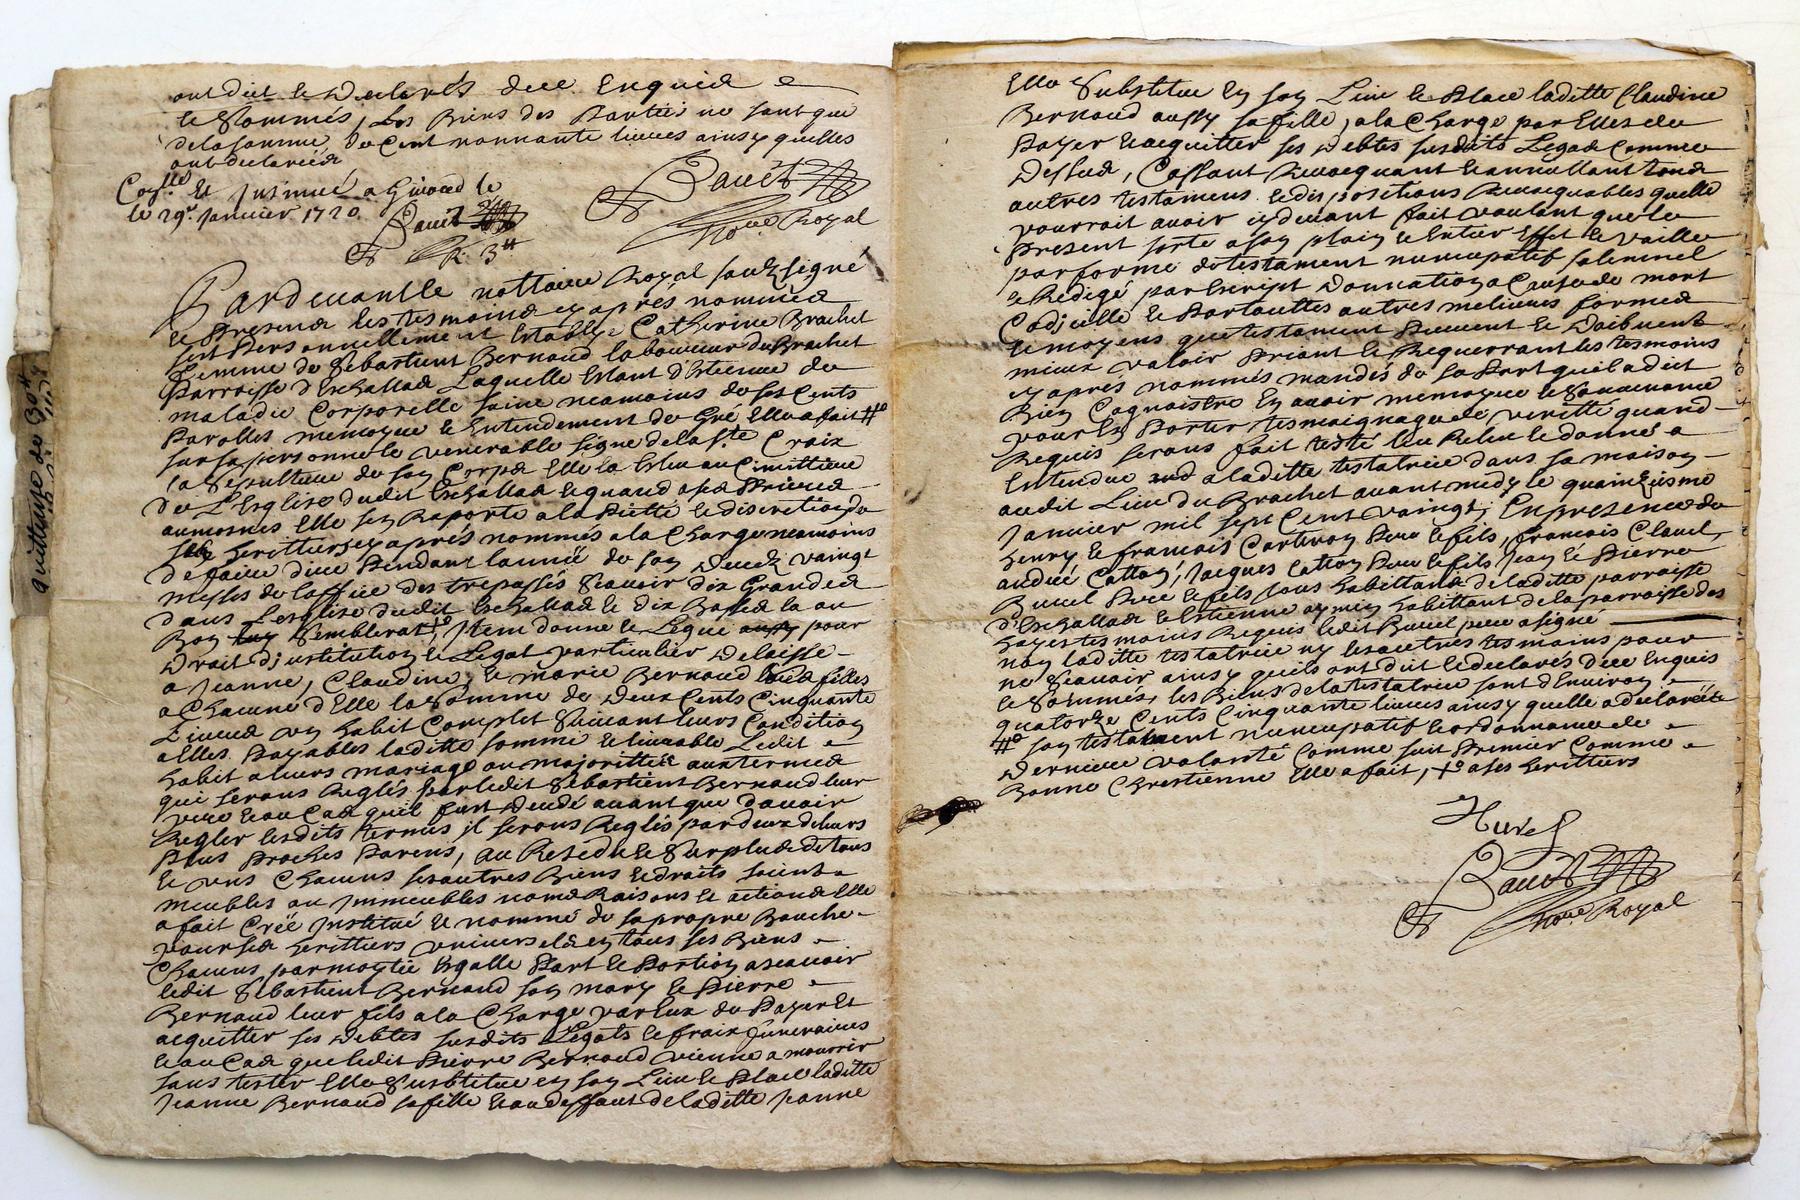 ont dit et declarés de ce Enquis et
et sommés, Les Biens des Parties ne sont que
de la somme de Cent nonnante livres ainsy quelles
ont declarées
et Insinué a Givord le
le 29e Janvier 1720
R. 3tt
Nore Royal
quittance de 30tt
Pardevant le nottaire Royal soubzsigné
et Presens les tesmoins cy apres nommés
fust Personnellement Establye Catherine Brachet
femme de Sébastient Bernaud laboureur du Brachet
Parroisse d'Eschallas Laquelle Estant detenue de
maladie Corporelle saine neamoins de ses Cents
Parolles memoyre et Entendement de Gré Elle a fait #o
sur sa personne le venerable signe de la Ste Croix
la sepulture de son Corps Elle la Esleu au Cimittiere
de L'Esglise dudit Eschallas et quand a ses Prieres
aumosnes Elle sen Raporte a la Piette et discretion de
ses herittiers cy aprés nommés a la Charge neamoins
de faire dire Pendant lannée de son Decedz vaingt
messes de Loffice des trepassés Scavoir dix Grandes
dans Lesglise dudit Eschallas et dix Basses la ou
Bon Semblerat +o Item donne et Legue pour
Droit d'institution et Legat particulier Delaissé
a Jeanne, Claudine, et marie Bernaud ses filles
a Chacune d'Elle la Somme de Deux Cents Cinquante
Livres un habit Complet Suivant leurs Condition
a Elles Payables laditte somme et livrable Ledit
habit a leurs mariage ou majorittée aux termes
qui serons Reglés par ledit Sébastient Bernaud leur
pere et au Cas quil fust Decedé avant que d'avoir
Regler lesdits termes il serons Reglés par deux de leurs
Plus Proches Parens, Au Residu et Surplus de tous
et uns Chacuns ses autres Biens et droits soient
meubles ou Immeubles noms Raisons et actions Elle
a fait Créé Institué et nommé de sa propre Bouche
pour ses herittiers universels en tous ses Biens
Chacuns par moytié Esgalle Part et Portion a scavoir
ledit Sébastient Bernaud son mary et Pierre
Bernaud leur fils a la Charge par Eux de Payer Et
acquitter ses Debtes susdits Légats et fraix funeraires
et au Cas que ledit Pierre Bernaud vienne a mourrir
sans tester Elle Substitue en son Lieu et Place laditte
Jeanne Bernaud sa fille et au deffaut de laditte Jeanne
Elle Substitue En son Lieu et Place laditte Claudine
Bernaud aussy sa fille, a la Charge par Elles de
Payer et acquitter ses Debtes susdits Legas Comme
Dessus, Cassant Revocquant et annullant tous
autres testamens et dispositions Revocquables quelle
pourrait avoir cy devant fait voulant que le
Present sorte a son plain et Entier Effet et vaille
par forme de testament nuncupatif solemnel
et Redigé par Escript Donnation a Cause de mort
Codicille et Par touttes autres melieures formes
et moyens que testament Peuvent et Doibvent
mieux valoir Priant et Requerrant les tesmoins
cy apres nommés mandés de sa Part quil a dit
Bien Cognoistre En avoir memoyre et Souvenance
pour En Porter tesmoignage de verité quand
Requis serons fait testé leu Releu et donné a
Entendre a laditte testatrice dans sa maison
audit Lieu du Brachet avant midy le quainziesme
Janvier mil sept Cent vaingt; En presence de
henry et francois Corteron Pere et fils, francois Clavel,
André Catton, Jacques Catton Pere et fils Jean et Pierre
Buvel Pere et fils tous habittans de laditte parroisse
d'Eschallas et Estienne aymin habittant de la parroisse des
hayes tesmoins Requis ledit Buvel pere a signé
non laditte testatrice ny les autres tesmoins pour
ne Scavoir ainsy quils ont dit et declarés de ce Enquis
et Sommés, les Biens de la testatrice sont d'Environ
quatorze Cents Cinquante livres ainsy quelle a declarée
#o son testament nuncupatif et ordonnance de
Derniere volonté Comme suit Premier Comme
Bonne Chrestienne Elle a fait, +o a ses herittiers
Nore Royal